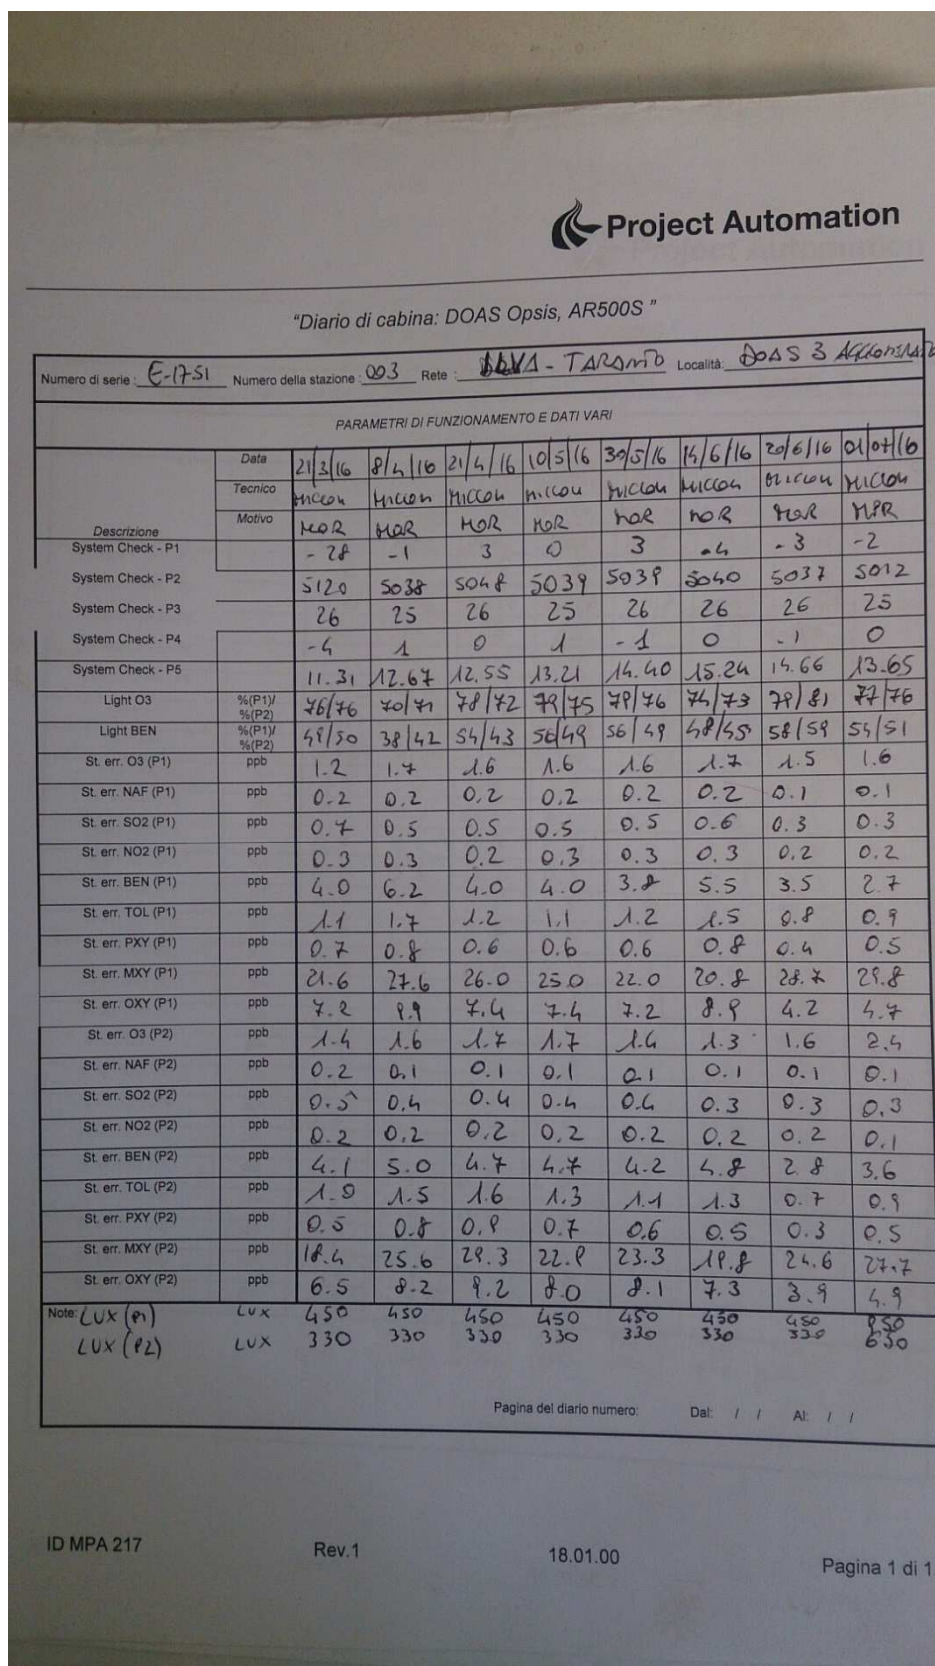 Project Automation
"Diario di cabina: DOAS Opsis, AR500S "
Numero di serie : E-17-51 Numero della stazione : 003 Rete : - TARANTO Località: DOAS 3
PARAMETRI DI FUNZIONAMENTO E DATI VARI
Data 21/3/16 8/4/16 21/4/16 10/5/16 30/5/16 14/6/16 20/6/16 01/07/16
Tecnico
Descrizione Motivo MOR MOR MOR MOR MOR MOR MOR
System Check - P1 - 28 - 1 3 0 3 - 4 - 3 - 2
System Check - P2 5120 5038 5048 5039 5039 5040 5037 5012
System Check - P3 26 25 26 25 26 26 26 25
System Check - P4 - 4 1 0 1 - 1 0 - 1 0
System Check - P5 11.31 12.67 12.55 13.21 14.40 15.24 14.66 13.65
Light O3 %(P1)/ %(P2) 76/76 70/71 78/72 79/75 79/76 74/73 79/81 77/76
Light BEN %(P1)/ %(P2) 49/50 38/42 54/43 56/49 56/49 48/45 58/59 54/51
St. err. O3 (P1) ppb 1.2 1.7 1.6 1.6 1.6 1.7 1.5 1.6
St. err. NAF (P1) ppb 0.2 0.2 0.2 0.2 0.2 0.2 0.1 0.1
St. err. SO2 (P1) ppb 0.7 0.5 0.5 0.5 0.5 0.6 0.3 0.3
St. err. NO2 (P1) ppb 0.3 0.3 0.2 0.3 0.3 0.3 0.2 0.2
St. err. BEN (P1) ppb 4.0 6.2 4.0 4.0 3.8 5.5 3.5 2.7
St. err. TOL (P1) ppb 1.1 1.7 1.2 1.1 1.2 1.5 0.8 0.9
St. err. PXY (P1) ppb 0.7 0.8 0.6 0.6 0.6 0.8 0.4 0.5
St. err. MXY (P1) ppb 21.6 27.6 26.0 25.0 22.0 20.8 28.7 29.8
St. err. OXY (P1) ppb 7.2 9.9 7.4 7.4 7.2 8.9 4.2 4.7
St. err. O3 (P2) ppb 1.4 1.6 1.7 1.7 1.4 1.3 1.6 2.4
St. err. NAF (P2) ppb 0.2 0.1 0.1 0.1 0.1 0.1 0.1 0.1
St. err. SO2 (P2) ppb 0.5 0.4 0.4 0.4 0.4 0.3 0.3 0.3
St. err. NO2 (P2) ppb 0.2 0.2 0.2 0.2 0.2 0.2 0.2 0.1
St. err. BEN (P2) ppb 4.1 5.0 4.7 4.7 4.2 4.8 2.8 3.6
St. err. TOL (P2) ppb 1.0 1.5 1.6 1.3 1.1 1.3 0.7 0.9
St. err. PXY (P2) ppb 0.5 0.8 0.9 0.7 0.6 0.5 0.3 0.5
St. err. MXY (P2) ppb 18.4 25.6 29.3 22.9 23.3 19.8 24.6 27.7
St. err. OXY (P2) ppb 6.5 8.2 9.2 8.0 8.1 7.3 3.9 4.9
Note: LUX (P1) LUX 450 450 450 450 450 450 450
LUX (P2) LUX 330 330 330 330 330 330 330 630
Pagina del diario numero: Dal: / / Al: / /
ID MPA 217 Rev.1 18.01.00 Pagina 1 di 1